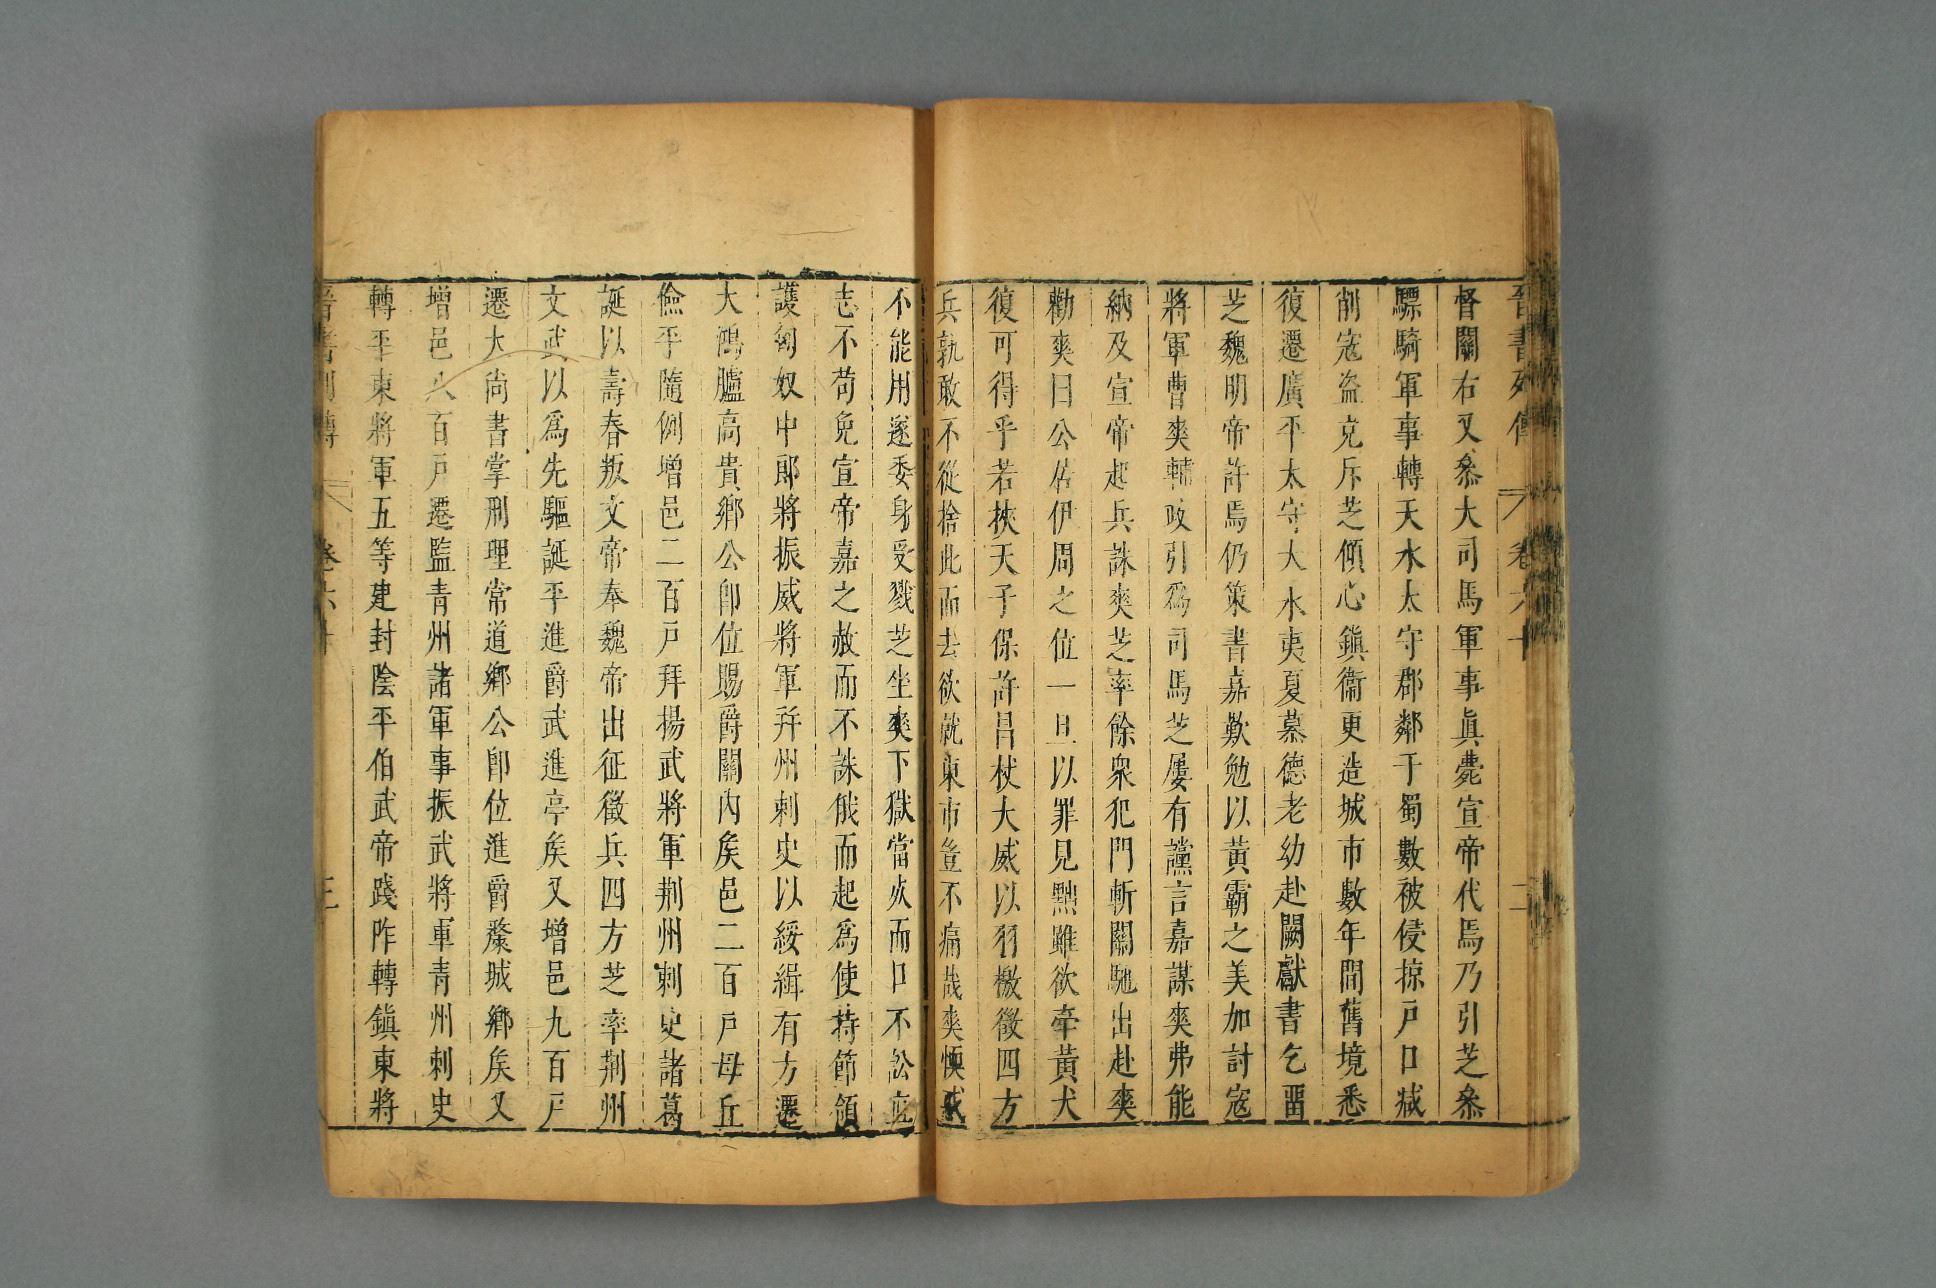 晉書列傳 卷六十 二
督關右又叅大司馬軍事眞薨宣帝代焉乃引芝叅
驃騎軍事轉天水太守郡鄰于蜀數被侵掠戶口减
削寇盜充斥芝傾心鎮衞更造城市數年間舊境悉
復遷廣平太守大水夷夏慕德老幼赴闕獻書乞畱
芝魏明帝許焉仍策書嘉歎勉以黃霸之美加討寇
將軍曹爽輔政引爲司馬芝屢有讜言嘉謀爽弗能
納及宣帝起兵誅爽芝率餘衆犯門斬關馳出赴爽
勸爽曰公居伊周之位一旦以罪見黜雖欲牽黃犬
復可得乎若挾天子保許昌杖大威以羽檄徵四方
兵孰敢不從捨此而去欲就東市豈不痛哉爽懦惑
不能用遂委身受戮芝坐爽下獄當死而口不訟直
志不苟免宣帝嘉之赦而不誅俄而起爲使持節領
護匈奴中郎將振威將軍幷州刺史以綏緝有方遷
大鴻臚高貴鄉公卽位賜爵關內矦邑二百戶母丘
儉平隨例增邑二百戶拜揚武將軍荆州刺史諸葛
誕以壽春叛文帝奉魏帝出征徵兵四方芝率荆州
文武以爲先驅誕平進爵武進亭矦又增邑九百戶
遷大尚書掌刑理常道鄉公卽位進爵斄城鄉矦又
增邑八百戶遷監青州諸軍事振武將軍青州刺史
轉平東將軍五等建封陰平伯武帝踐阼轉鎮東將
晉書列傳 卷六十 三